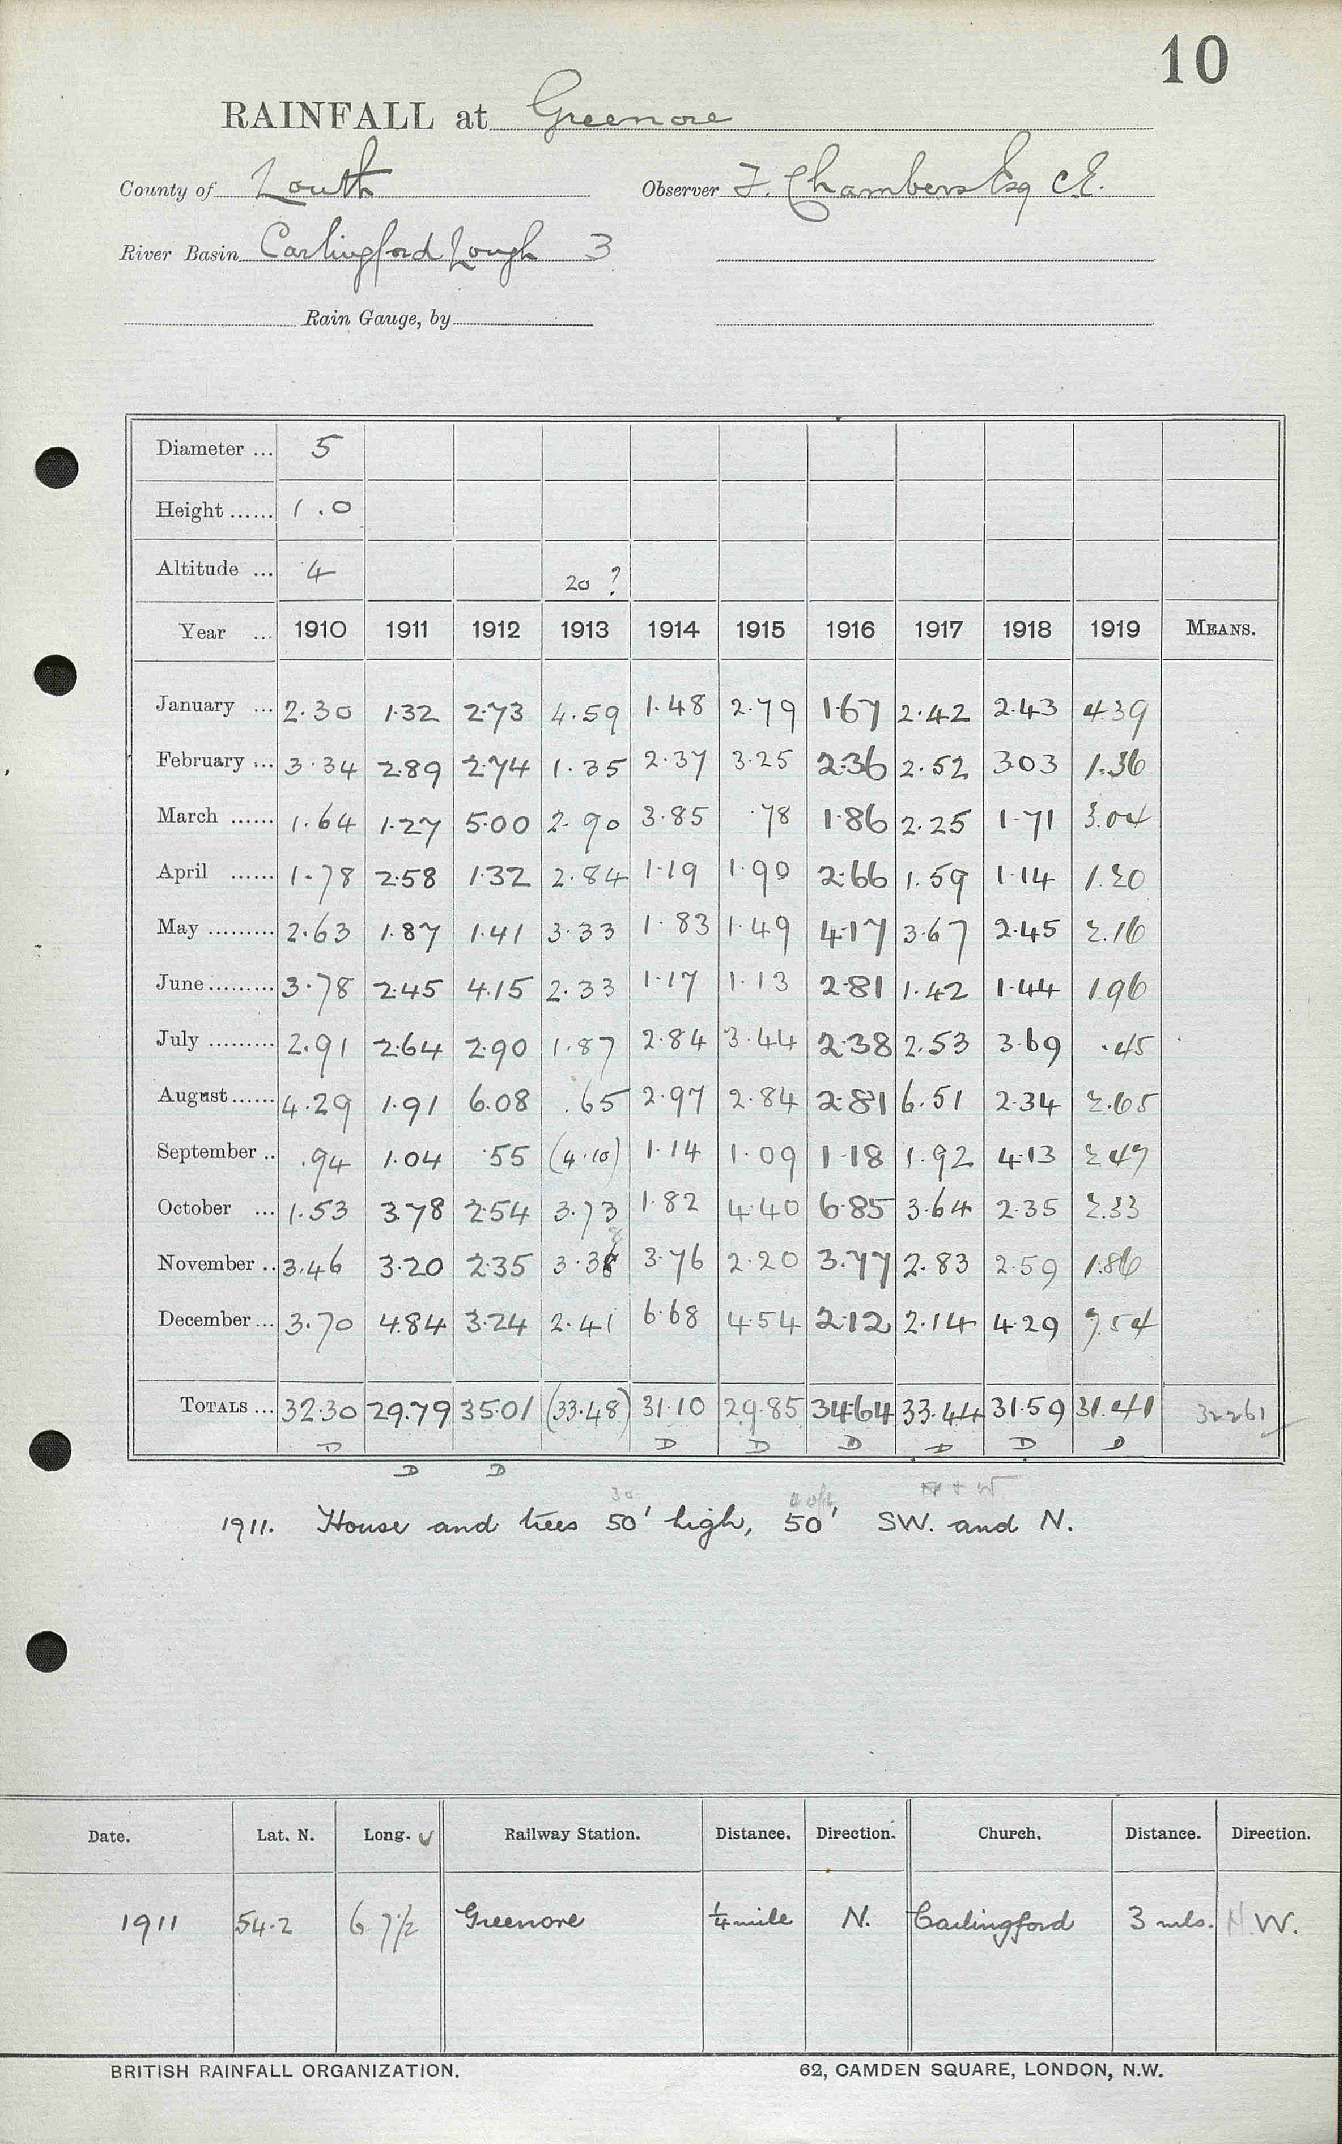 10
RAINFALL at Greenore
County of Louth Observer F. Chambers Esq C.E.
River Basin Carlingford Lough 3
Rain Gauge, by
Diameter ... 5
Height ...... 1.0
Altitude ... 4 20 ?
Year ... 1910 1911 1912 1913 1914 1915 1916 1917 1918 1919 MEANS.
January ... 2.30 1.32 2.73 4.59 1.48 2.79 1.67 2.42 2.43 4.39
February ... 3.34 2.89 2.74 1.35 2.37 3.25 2.36 2.52 3.03 1.36
March ...... 1.64 1.27 5.00 2.90 3.85 .78 1.86 2.25 1.71 3.04
April ...... 1.78 2.58 1.32 2.84 1.19 1.90 2.66 1.59 1.14 1.20
May ......... 2.63 1.87 1.41 3.33 1.83 1.49 4.17 3.67 2.45 2.16
June ......... 3.78 2.45 4.15 2.33 1.17 1.13 2.81 1.42 1.44 1.96
July ......... 2.91 2.64 2.90 1.87 2.84 3.44 2.38 2.53 3.69 .45
August ...... 4.29 1.91 6.08 .65 2.97 2.84 2.81 6.51 2.34 2.65
September .. .94 1.04 .55 (4.10) 1.14 1.09 1.18 1.92 4.13 2.47
October ... 1.53 3.78 2.54 3.73 1.82 4.40 6.85 3.64 2.35 2.33
November .. 3.46 3.20 2.35 3.38 3.76 2.20 3.77 2.83 2.59 1.86
December ... 3.70 4.84 3.24 2.41 6.68 4.54 2.12 2.14 4.29 7.54
TOTALS ... 32.30 29.79 35.01 (33.48) 31.10 29.85 34.64 33.44 31.59 31.41 32.261
D D D D D D D
D D
30
1911. House and trees 50' high, 50' SW. and N.
Date. Lat. N. Long. Railway Station. Distance. Direction. Church. Distance. Direction.
1911 54.2 6 7½ Greenore ¼ mile N. Carlingford 3 mls. N W.
BRITISH RAINFALL ORGANIZATION. 62, CAMDEN SQUARE, LONDON, N.W.